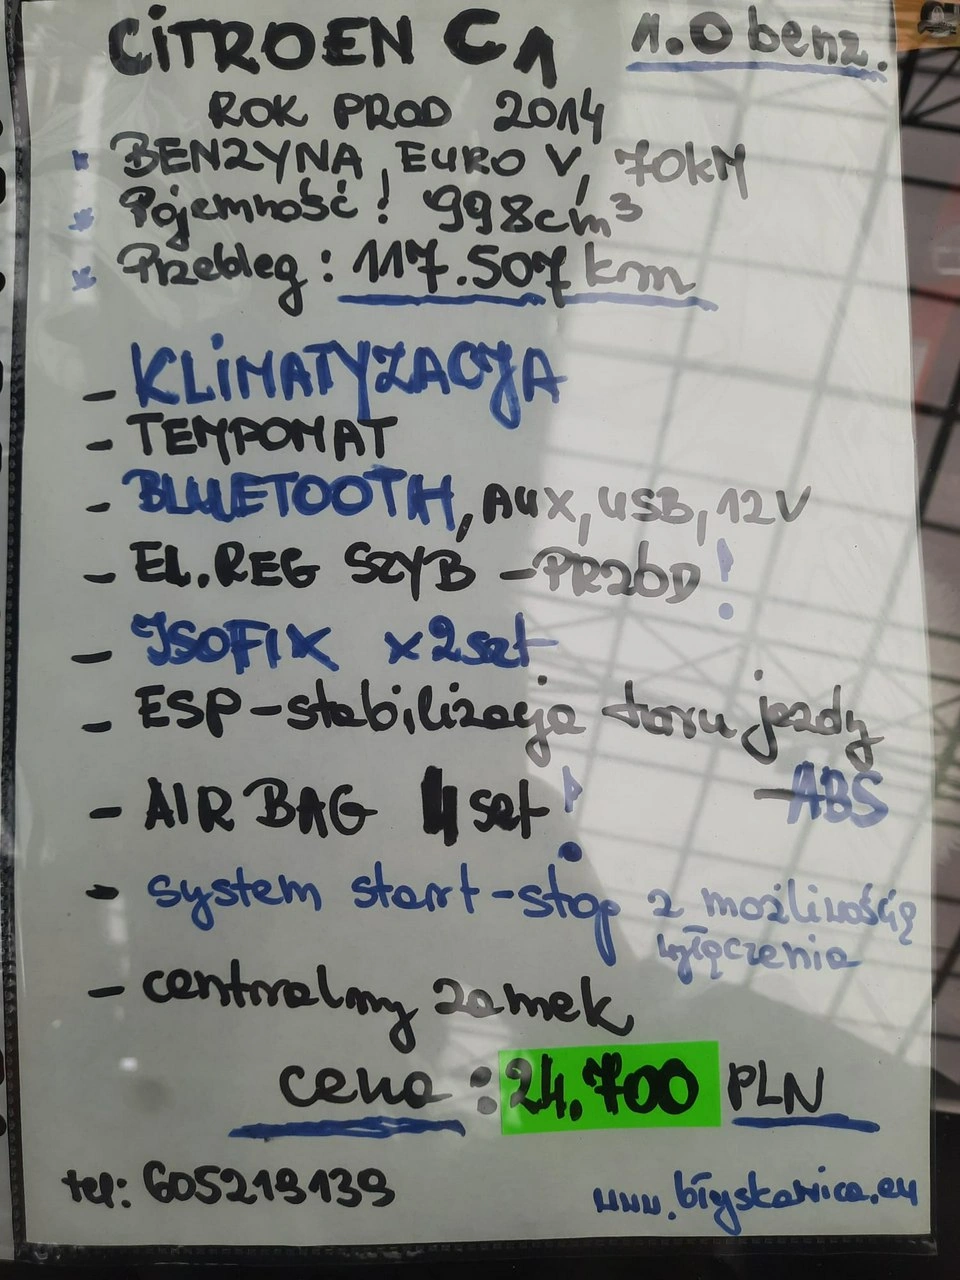 CiTROEN C1 1.0 benz.
ROK PROD 2014
BENZYNA, EURO V, 70kM
Pojemność! 998cm³
Przebieg: 117.507 km
- KLiMATYZACJA
- TEMPOMAT
- BLUETOOTH, AUX, USB, 12V
- EL.REG SZYB - PRZÓD!
- ISOFIX x2szt
- ESP - stabilizacja toru jazdy
- AIR BAG 4 szt! - ABS
- system start-stop z możliwością
wyłączenia
- centralny zamek
cena: 24.700 PLN
tel: 605219139 www.błyskawica.eu